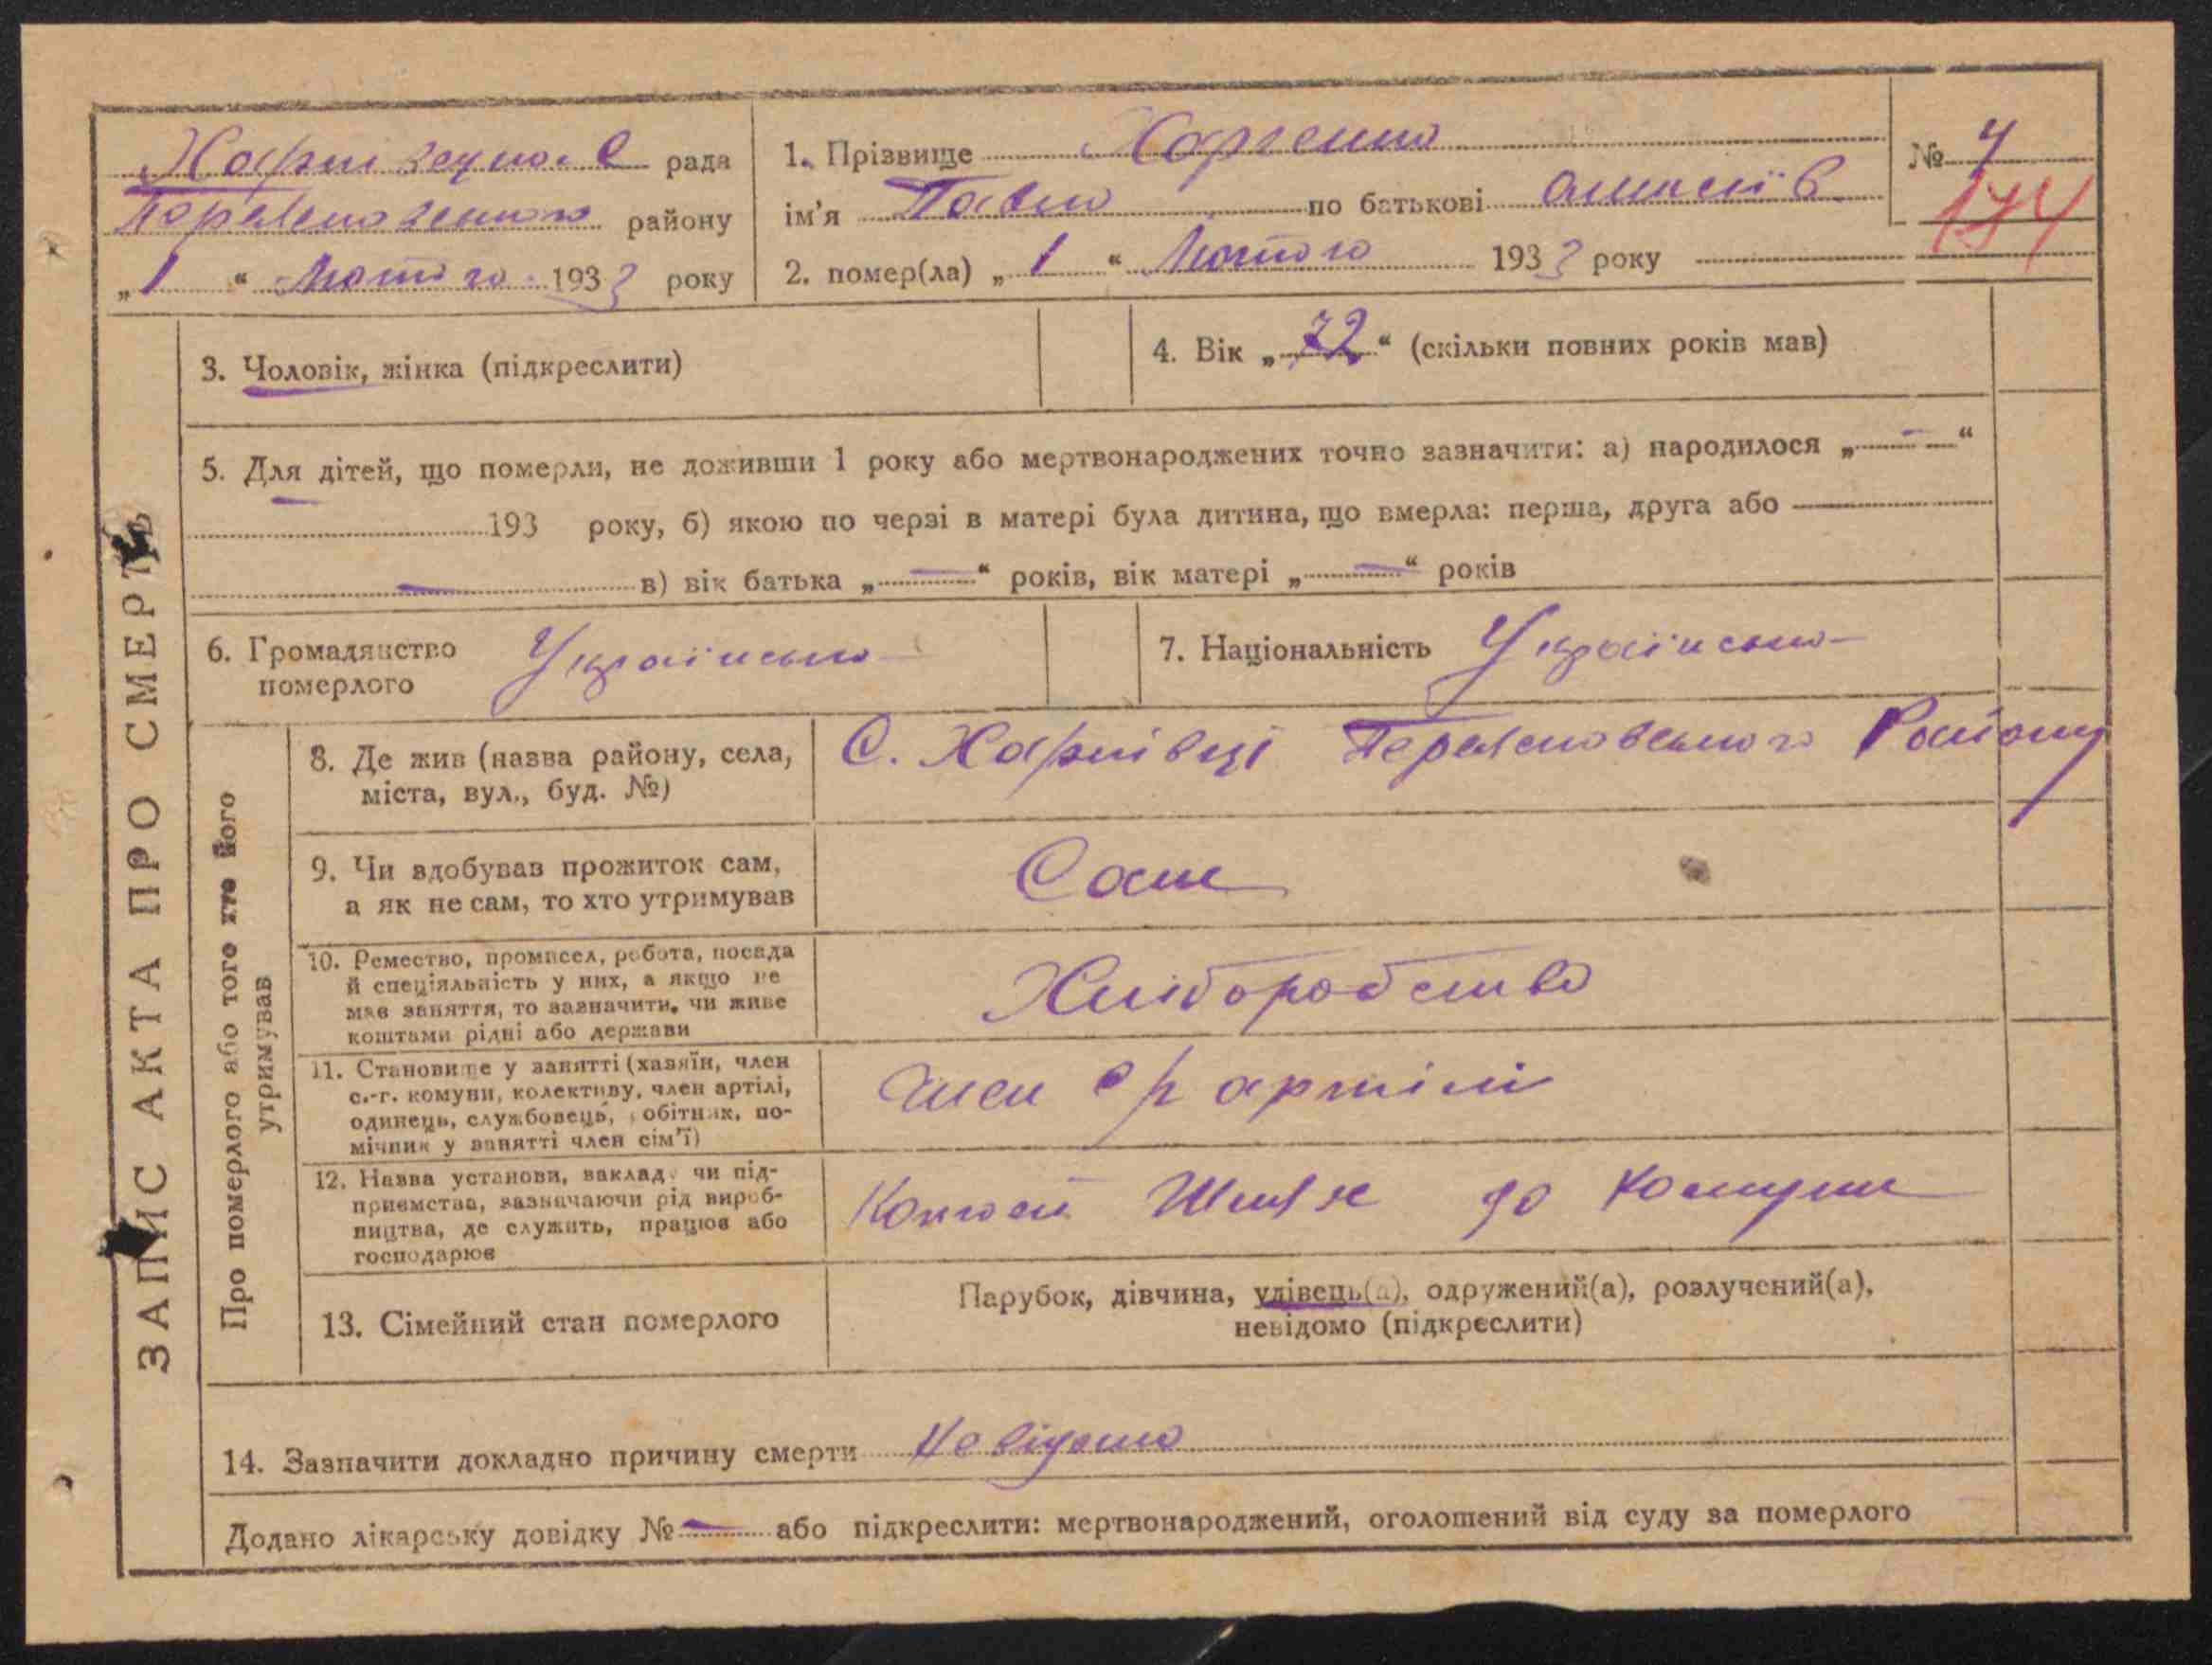 Харківецька С рада
Переяславського району
„1“ Лютого 1933 року
1. Прізвище Харченко
ім'я Павло по батькові
2. помер(ла) „1“ Лютого 1933 року
№ 4
174
ЗАПИС АКТА ПРО СМЕРТЬ
3. Чоловік, жінка (підкреслити)
4. Вік „72“ (скільки повних років мав)
5. Для дітей, що померли, не доживши 1 року або мертвонароджених точно зазначити: а) народилося „ — “
— 193 року, б) якою по черзі в матері була дитина, що вмерла: перша, друга або
— в) вік батька „ — “ років, вік матері „ — “ років
6. Громадянство
померлого
Українсько
7. Національність Українсько
Про померлого або того хто його
утримував
8. Де жив (назва району, села,
міста, вул., буд. №)
С. Харківці Переяславського Району
9. Чи здобував прожиток сам,
а як не сам, то хто утримував
Сам
10. Ремество, промисел, робота, посада
й спеціяльність у них, а якщо не
має заняття, то зазначити, чи живе
коштами рідні або держави
Хліборобство
11. Становище у занятті (хазяїн, член
с.-г. комуни, колективу, член артілі,
одинець, службовець, робітник, по-
мічник у занятті член сім'ї)
Член с/г артілі
12. Назва установи, закладу чи під-
приємства, зазначаючи рід вироб-
ництва, де служить, працює або
господарює
Шлях до комуни
13. Сімейний стан померлого
Парубок, дівчина, удівець(а), одружений(а), розлучений(а),
невідомо (підкреслити)
14. Зазначити докладно причину смерти Невідомо
Додано лікарську довідку № — або підкреслити: мертвонароджений, оголошений від суду за померлого